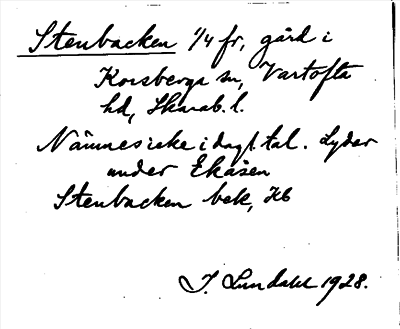 Stenbacken 1/4 fr, gård i
Korsberga sn, Vartofta
hd, Skarab. l.
Nämnes icke i dagl. tal. Lyder
under Ekåsen
Stenbacken bek, Hb
J. Lundahl 1928.